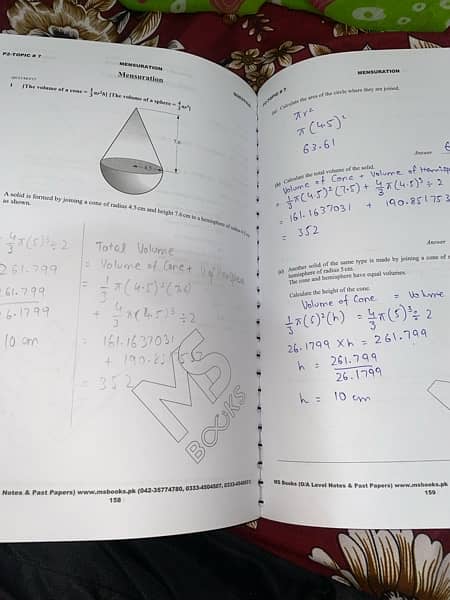 P2-TOPIC # 7
MENSURATION
Mensuration
1 [The volume of a cone = 1/3 πr²h] [The volume of a sphere = 4/3 πr³]
4.5
A solid is formed by joining a cone of radius 4.5 cm and height 7.6 cm to a hemisphere of radius
as shown.
4/3 π(5)³ ÷ 2
261.799
261.799
26.1799
10 cm
Total Volume
= Volume of Cone +
= 1/3 π(4.5)²(7.6)
+ 4/3 π(4.5)³ ÷ 2
= 161.1637031
+ 190.85
= 352
MS
BOOKS
Notes & Past Papers) www.msbooks.pk (042-35774780, 0333-4504507,
158
P2-TOPIC # 7
MENSURATION
(a) Calculate the area of the circle where they are joined.
πr²
π(4.5)²
63.61
Answer
(b) Calculate the total volume of the solid.
Volume of Cone + Volume of
= 1/3 π(4.5)²(7.5) + 4/3 π(4.5)³ ÷ 2
= 161.1637031 + 190.851753
= 352
Answer
(c) Another solid of the same type is made by joining a cone of
hemisphere of radius 5 cm.
The cone and hemisphere have equal volumes.
Calculate the height of the cone.
Volume of Cone = Volume
1/3 π(5)²(h) = 4/3 π(5)³ ÷ 2
26.1799 × h = 261.799
h = 261.799
26.1799
h = 10 cm
MS Books (O/A Level Notes & Past Papers) www.msbooks.pk
159